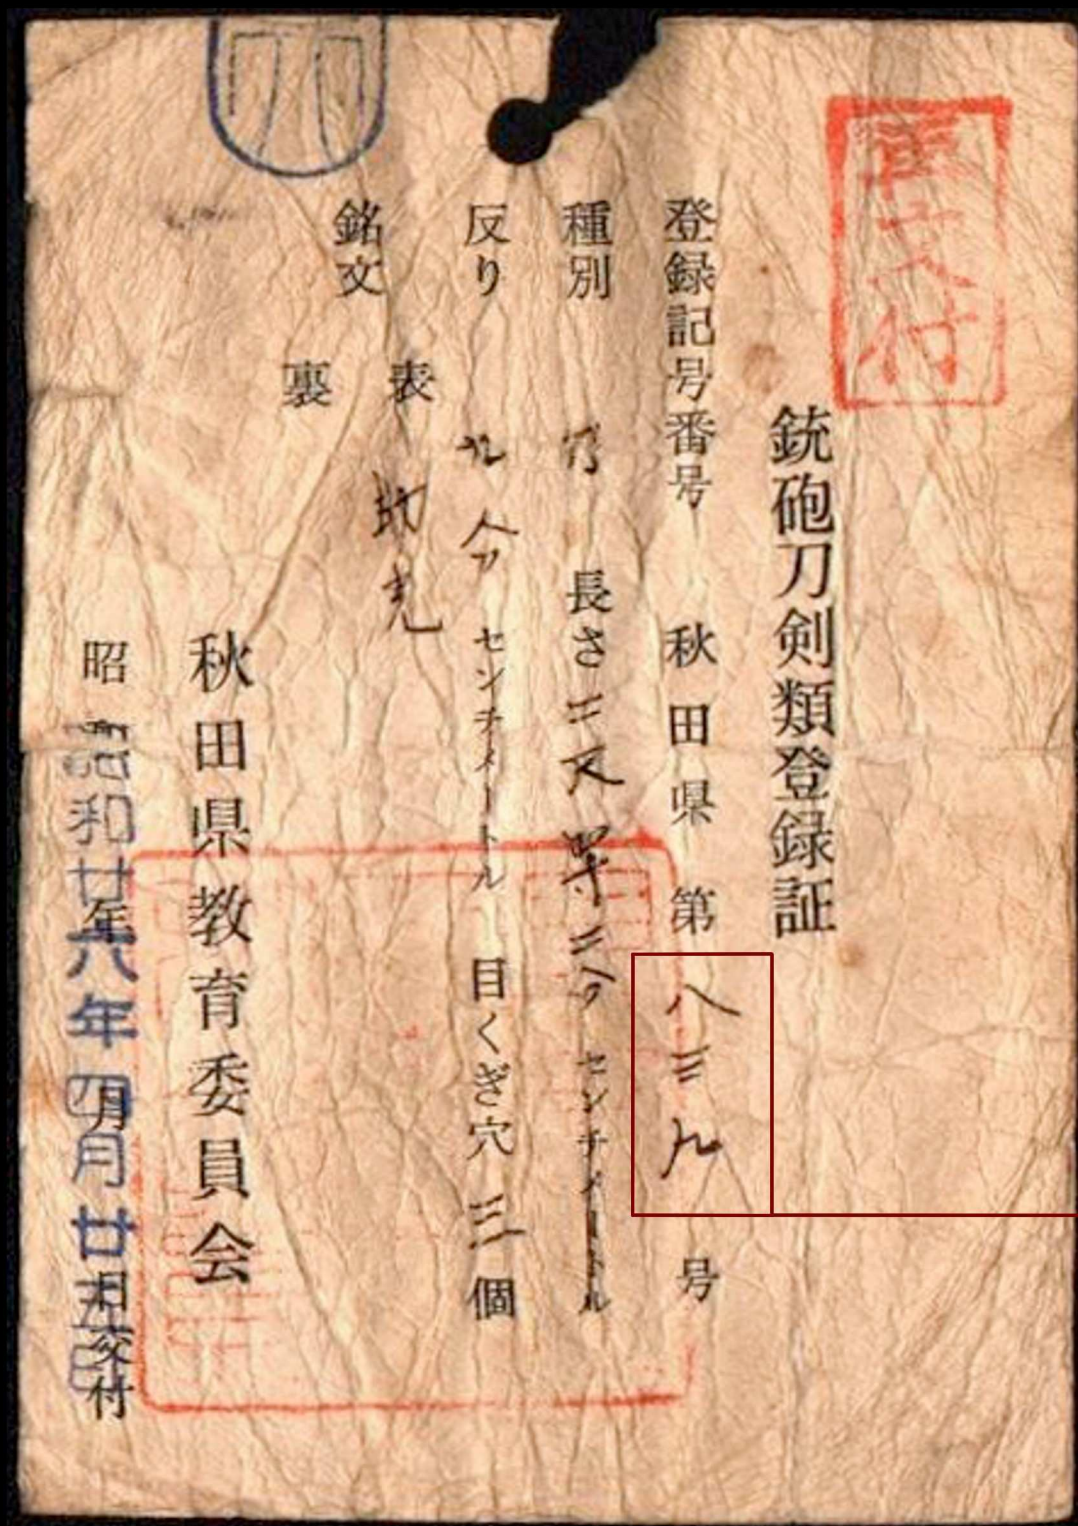 再交付
銃砲刀剣類登録証
登録記号番号 秋田県 第 八三九 号
種別 刀 長さ 二尺 四寸 二分 センチメートル
反り 九分 センチメートル 目くぎ穴 三 個
銘文
表
裏
秋田県教育委員会
昭 年 月 日交付
昭和廿六年四月廿五日